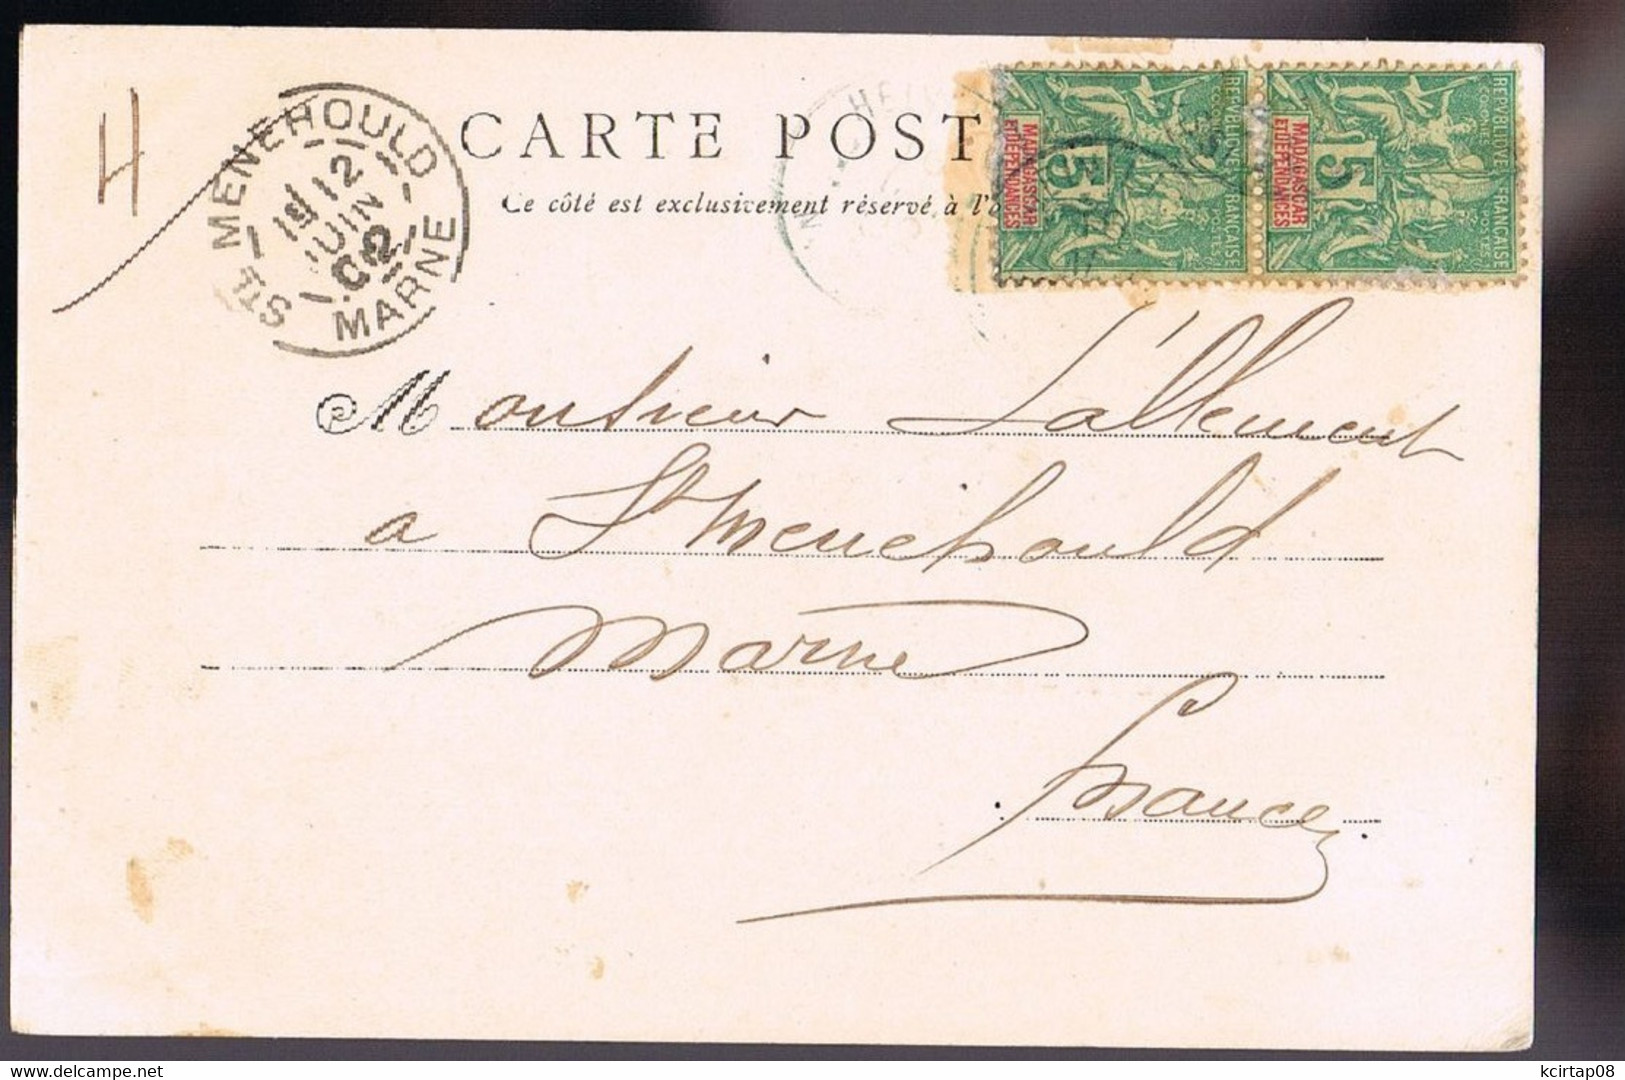 H
STE MENEHOULD
1E/12
JUIN
02
MARNE
CARTE POST
Ce côté est exclusivement réservé à l'a
REPVBLIQVE FRANÇAISE
COLONIES POSTES
MADAGASCAR
ET DÉPENDANCES
5
REPVBLIQVE FRANÇAISE
COLONIES POSTES
MADAGASCAR
ET DÉPENDANCES
5
Monsieur Lallement
a Ste Menehould
Marne
France
kcirtap08
delcampe.net